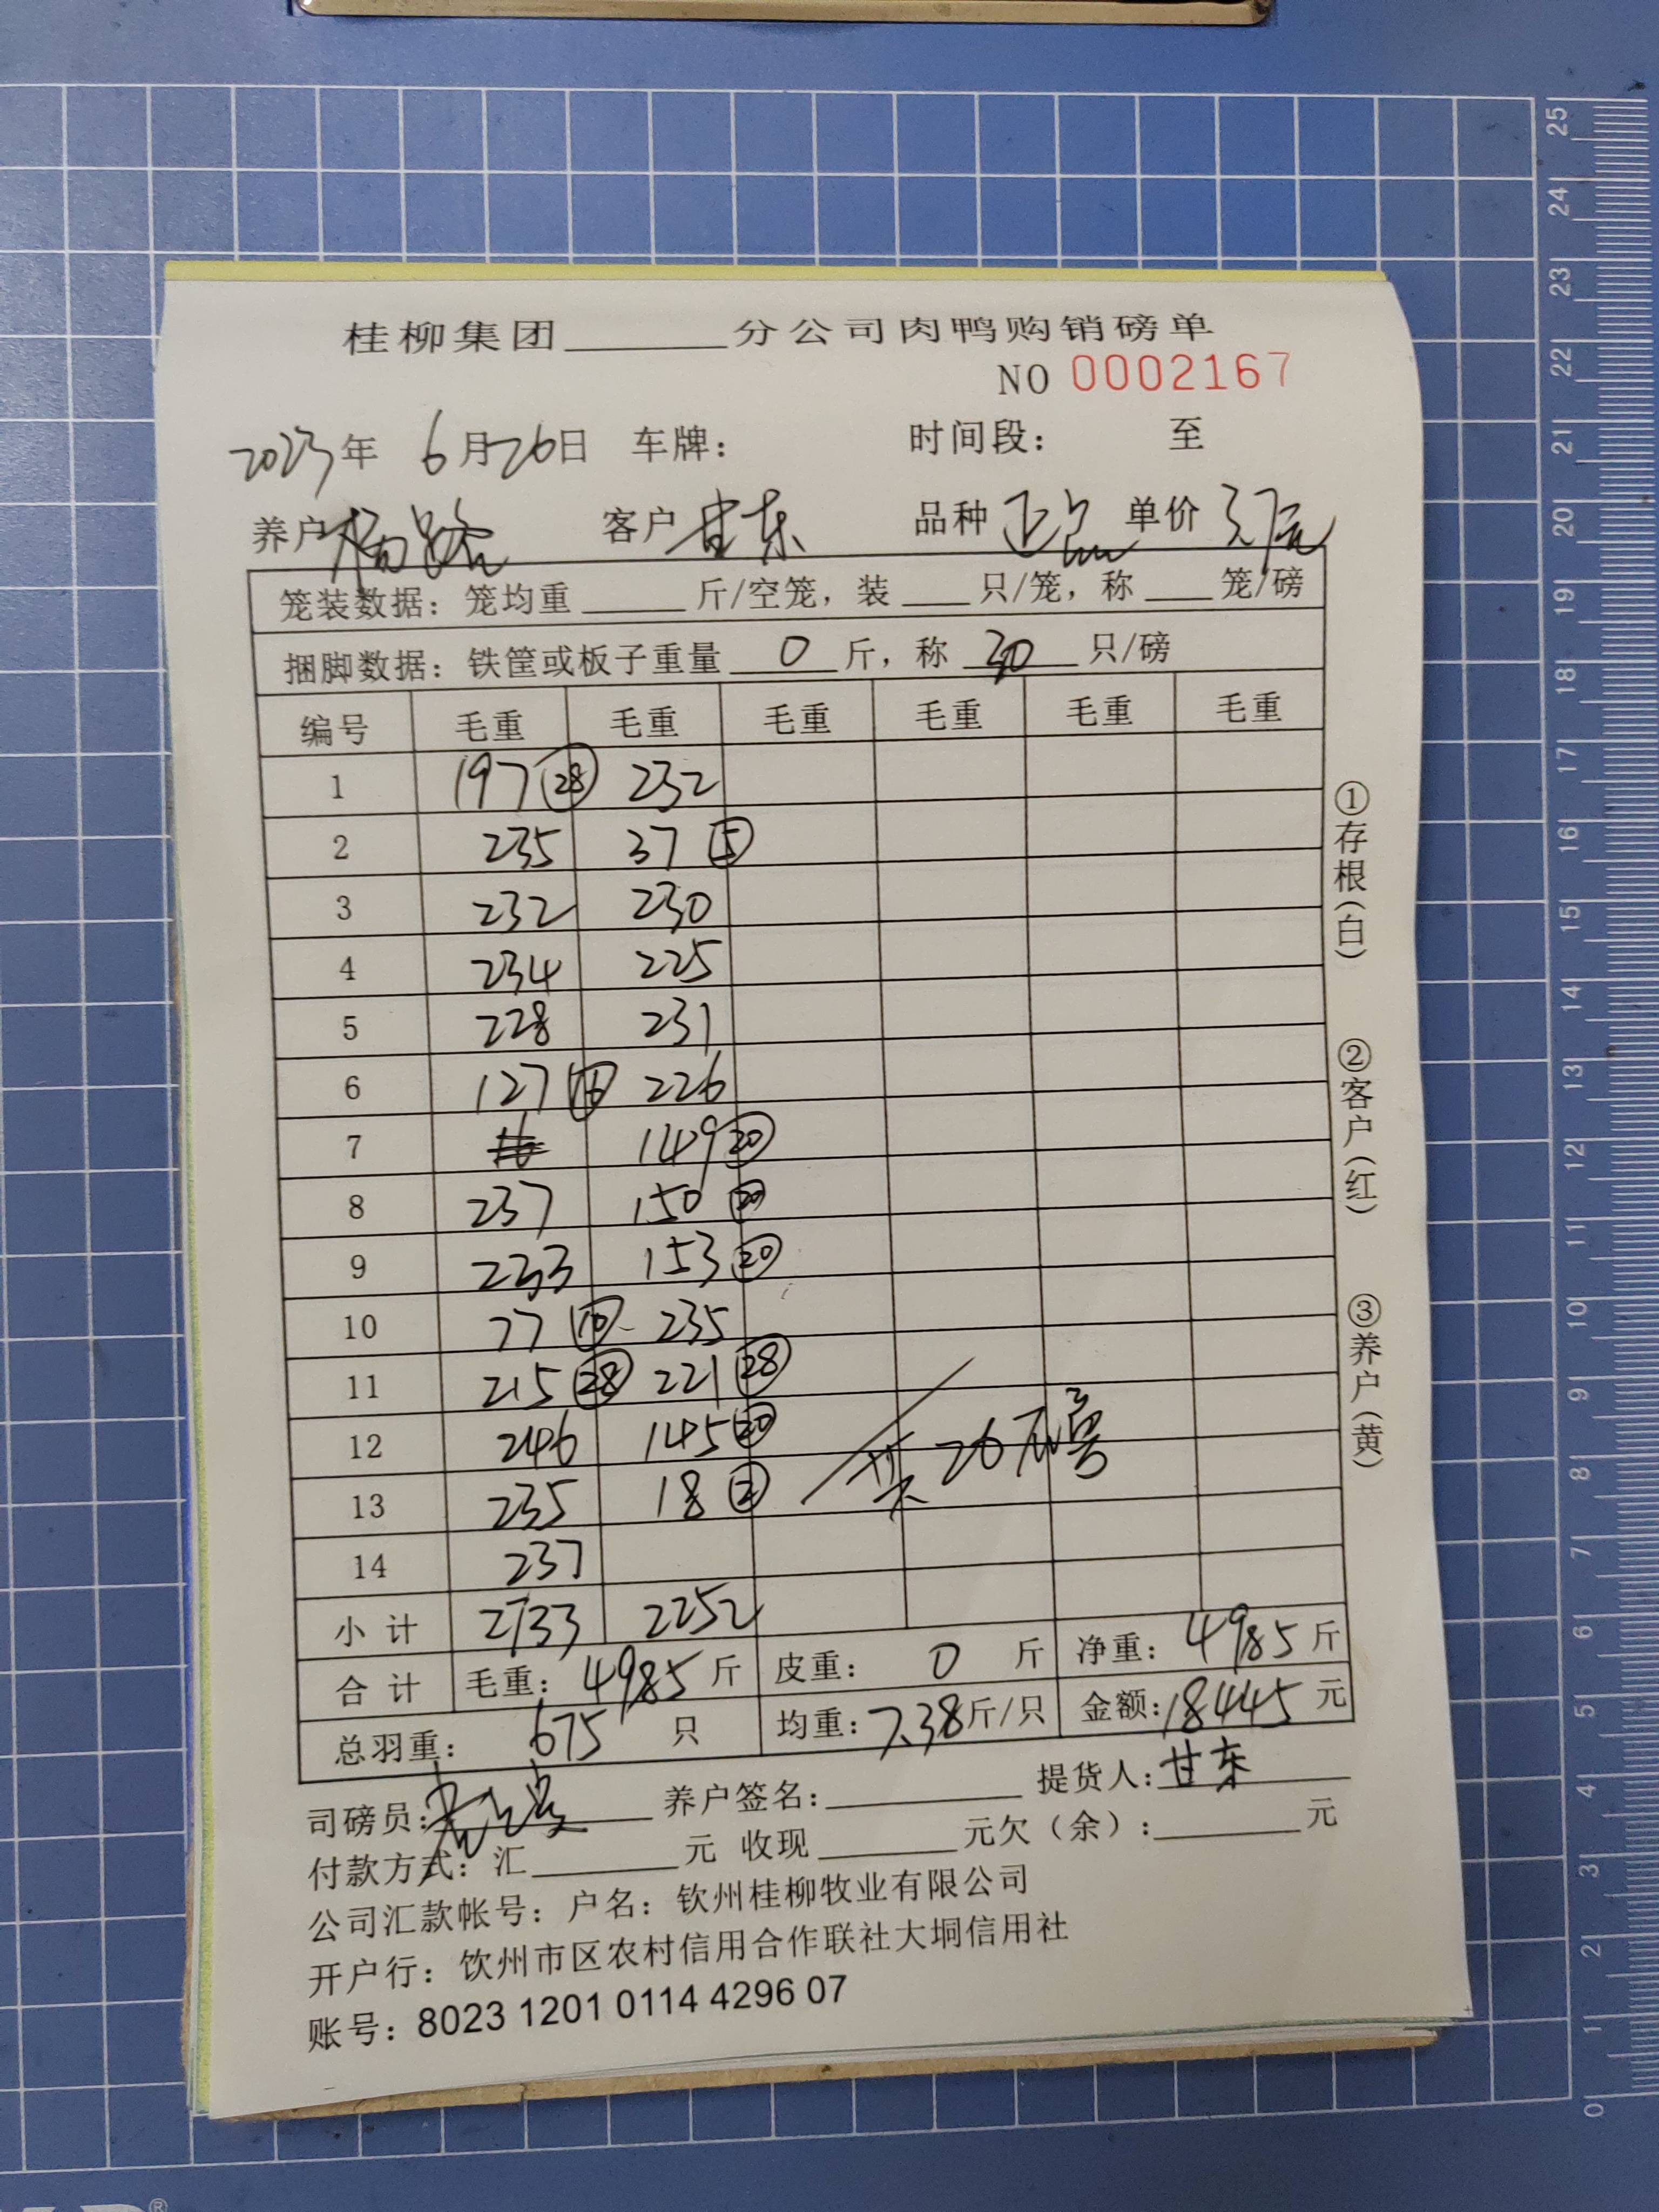 桂柳集团______分公司肉鸭购销磅单
NO 0002167
2023年 6月26日 车牌： 时间段： 至
养户 客户 甘东 品种 正品 单价 3.7元
笼装数据：笼均重______斤/空笼，装____只/笼，称____笼/磅
捆脚数据：铁筐或板子重量 0 斤，称 30 只/磅
编号 毛重 毛重 毛重 毛重 毛重 毛重
1 197 (28) 232
2 235 37 (5)
3 232 230
4 234 225
5 228 231
6 127 (16) 226
7 149 (20)
8 237 150 (20)
9 233 153 (20)
10 77 (10) 235
11 215 (28) 221 (28)
12 246 145 (20)
共26磅
13 235 18 (2)
14 237
小计 2733 2252
合计 毛重：4985斤 皮重：0 斤 净重：4985斤
总羽重：675 只 均重：7.38斤/只 金额：18445元
司磅员： 养户签名：________ 提货人：甘东
付款方式：汇______元 收现______元欠（余）：______元
公司汇款帐号：户名：钦州桂柳牧业有限公司
开户行：钦州市区农村信用合作联社大垌信用社
账号：8023 1201 0114 4296 07
①存根（白）
②客户（红）
③养户（黄）
25
24
23
22
21
20
19
18
17
16
15
14
13
12
11
10
9
8
7
6
5
4
3
2
1
0